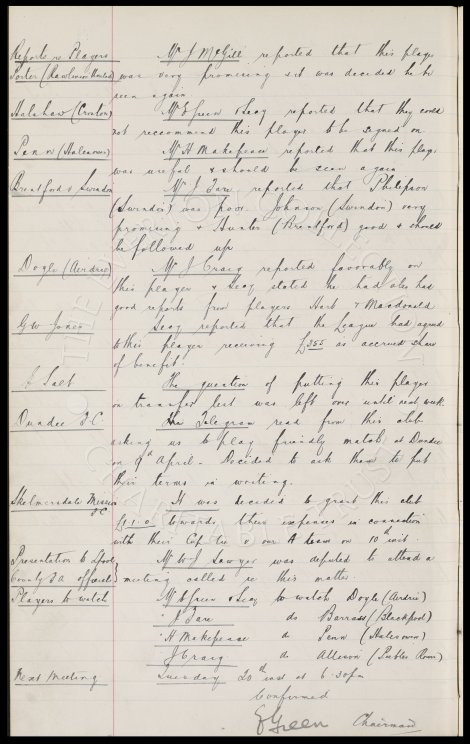 Reports re Players Mr J McGill reported that this player
Porter (Rawtenson United) was very promising & it was decided he be
seen again
Halshaw (Croston) Mr E Green & Secy reported that they could
not reccommend this player to be signed on.
Penn (Halesowen) Mr H Makepeace reported that this player
was useful & should be seen again
Brentford v Swindon Mr J Fare reported that Philipson
(Swindon) was poor. Johnson (Swindon) very
promising & Hunter (Brentford) good & should
be followed up.
Doyle (Airdrie) Mr J Craig reported favorably on
this player & Secy stated he had also had
good reports from players Hart & Macdonald
G W Jones Secy reported that the League had agreed
to this player receiving £355 as accrued share
of benefit.
J Salt The question of putting this player
on transfer list was left over until next week.
Dundee F.C. The Telegram read from this club
asking us to play friendly match at Dundee
on 9th April - Decided to ask them to put
their terms in writing.
Skelmersdale Mission F C It was decided to grant this club
towards their expenses in connection
with their Cup tie v our A team on 10th inst.
Presentation to L'pool Mr W J Sawyer was deputed to attend a
County F A officials meeting called re this matter.
Players to watch Mr E Green & Secy to watch Doyle (Airdrie)
" J Fare do Barrass (Blackpool)
" H Makepeace do Penn (Halesowen)
J Craig do Allison
Next Meeting Tuesday 20th inst at 6.30pm
Confirmed
E Green Chairman